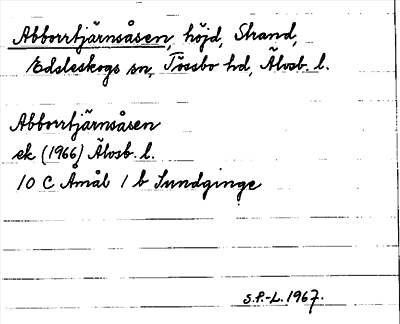 Abborrtjärnsåsen, höjd, Strand,
Edsleskogs sn, Tössbo hd, Älvsb. l.
Abborrtjärnsåsen
ek (1966) Älvsb. l.
10 C Åmål 1 b Sundginge
S.P.-L. 1967.